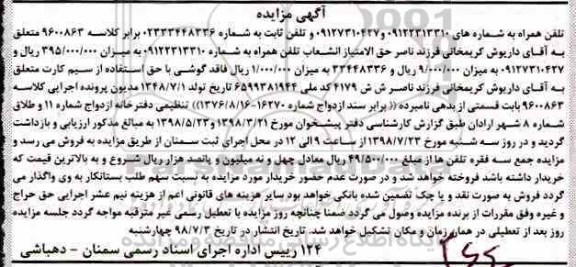 آگهی مزایده
تلفن همراه به شماره های ۰۹۱۲۲۳۱۳۳۱۰ و ۰۹۱۲۷۳۱۰۴۲۷ و تلفن ثابت به شماره ۰۲۳۳۳۴۴۸۳۳۶ برابر کلاسه ۹۶۰۰۸۶۳ متعلق
به آقای داریوش کریمخانی فرزند ناصر حق الامتیاز الشعاب تلفن همراه به شماره ۰۹۱۲۲۳۱۳۳۱۰ به میزان ۳۹۵/۰۰۰/۰۰۰ ریال و
۰۹۱۲۷۳۱۰۴۲۷ به میزان ۹/۰۰۰/۰۰۰ ریال و ۳۳۴۴۸۳۳۶ به میزان ۱/۰۰۰/۰۰۰ ریال فاقد گوشی با حق استفاده از سیم کارت متعلق
به آقای داریوش کریمخانی فرزند ناصر ش ش ۴۱۷۹ کد ملی ۶۵۹۹۳۸۱۹۴۴ تاریخ تولد ۱۳۴۸/۷/۱ مدیون پرونده اجرایی کلاسه
۹۶۰۰۸۶۳ بابت قسمتی از بدهی نامبرده (( برابر سند ازدواج شماره ۱۶۲۷۰-۱۳۷۶/۸/۱۶)) تنظیمی دفترخانه ازدواج شماره ۱۱ و طلاق
شماره ۸ شهر ارادان طبق گزارش کارشناسی دفتر پیشخوان مورخ ۱۳۹۸/۳/۲۱ و ۱۳۹۸/۵/۲۳ به مبالغ مذکور ارزیابی و بازداشت
گردید و در روز سه شنبه مورخ ۱۳۹۸/۷/۲۳ از ساعت ۹ الی ۱۲ در محل اجرای ثبت سمنان از طریق مزایده به فروش می رسد و
مزایده جمع سه فقره تلفن ها از مبلغ ۴۹/۵۰۰/۰۰۰ ریال معادل چهل و نه میلیون و پانصد هزار ریال شروع و به بالاترین قیمت که
خریدار داشته باشد فروخته خواهد شد و در صورت عدم حضور خریدار مورد مزایده به نسبت سهم طلب بستانکار به وی واگذار می
گردد فروش به صورت نقد و یا چک تضمین شده بانکی خواهد بود سایر هزینه های قانونی اعم از هزینه نیم عشر اجرایی حق حراج
و غیره وفق مقررات از برنده مزایده وصول می گردد ضمنا چنانچه روز مزایده با تعطیل رسمی غیر مترقبه مواجه گردد جلسه مزایده
روز بعد از تعطیلی در همان زمان و مکان تشکیل خواهد شد. تاریخ انتشار در تاریخ ۹۸/۷/۳ چهارشنبه
۱۲۴ رییس اداره اجرای اسناد رسمی سمنان - دهباشی